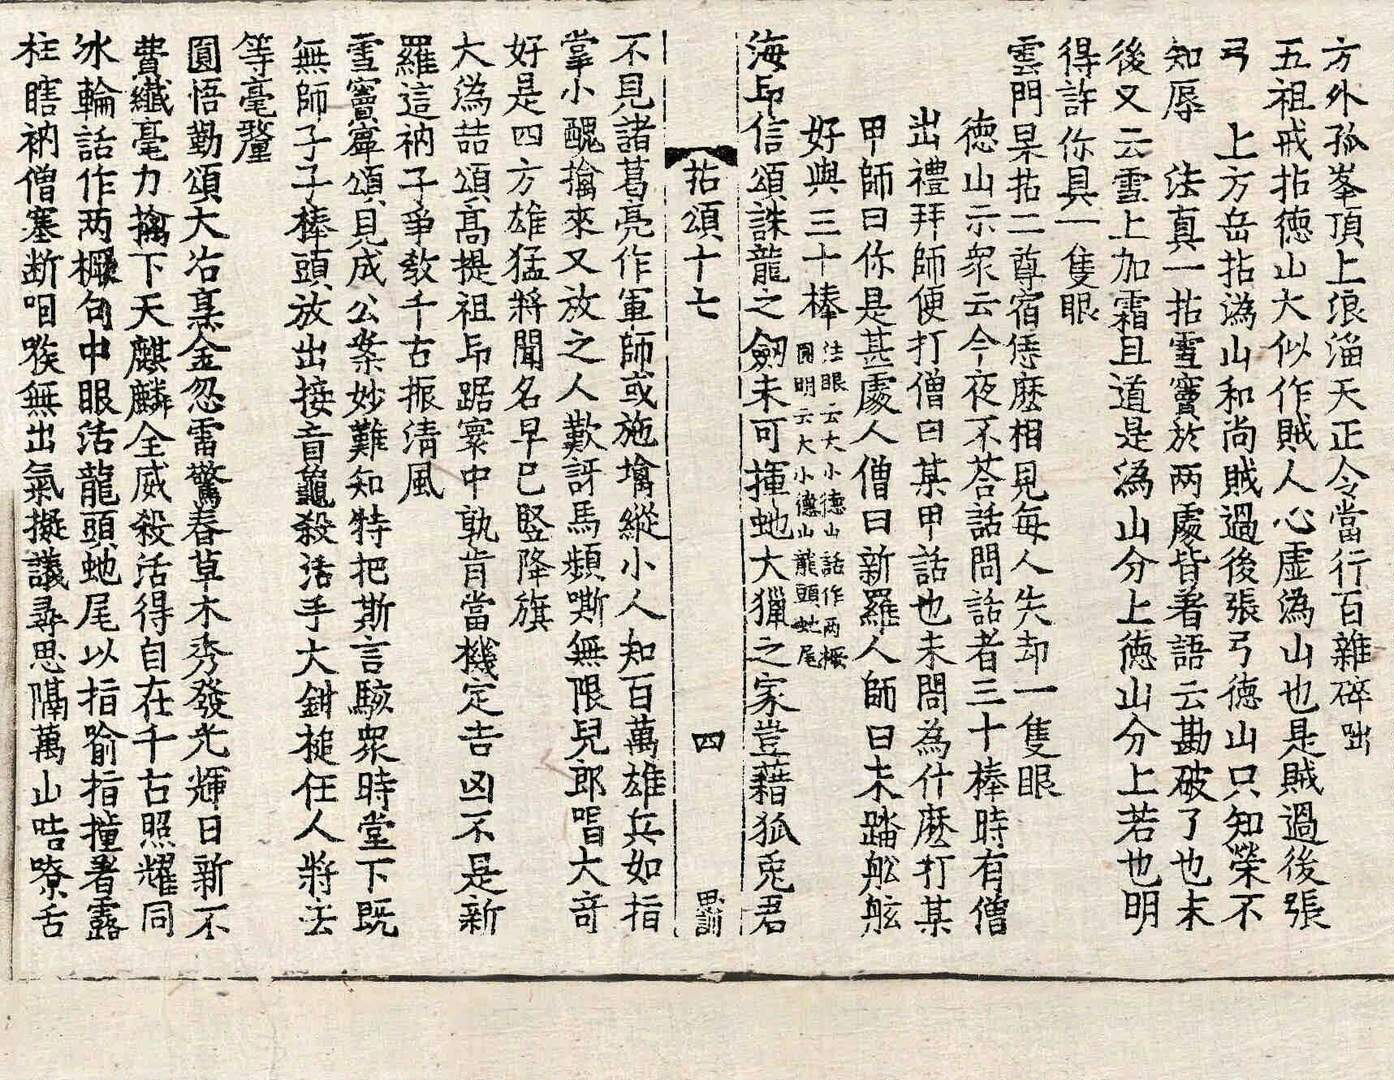 方外孤峯頂上浪滔天正令當行百雜碎咄
五祖戒拈徳山大似作賊人心虛溈山也是賊過後張
弓　上方岳拈溈山和尚賊過後張弓徳山只知榮不
知辱　法真一拈雪竇於两處皆著語云勘破了也末
後又云雪上加霜且道是爲山分上徳山分上若也明
得許你具一隻眼
雲門杲拈二尊宿恁麽相見每人失却一隻眼
徳山示衆云今夜不荅話問話者三十棒時有僧
出禮拜師便打僧曰某甲話也未問為什麽打某
甲師曰你是甚處人僧曰新羅人師曰未踏舩舷
好與三十棒
法眼云大小德山話作两橛
圓明云大小德山龍頭虵尾
海印信頌誅龍之劒未可揮虵大獵之家豈藉狐兎君
拈頌十七
四
思訓
不見諸葛亮作軍師或施擒縱小人知百萬雄兵如指
掌小醜擒來又放之人歎訝馬頻嘶無限兒郎唱大奇
好是四方雄猛將聞名早已竪降旗
大溈喆頌髙提祖印踞寰中孰肯當機定吉凶不是新
羅這衲子爭敎千古振清風
雪竇寧頌見成公案妙難知特把斯言駭衆時堂下既
無師子子棒頭放出接盲龜殺活手大鉗鎚任人將去
等毫釐
圓悟勤頌大冶烹金忽雷驚春草木秀發光輝日新不
費纎毫力擒下天麒麟全威殺活得自在千古照耀同
冰輪話作两橛句中眼活龍頭虵尾以指喻指撞著露
柱瞎衲僧塞断咽㗋無出氣擬議尋思隔萬山咭嘹舌